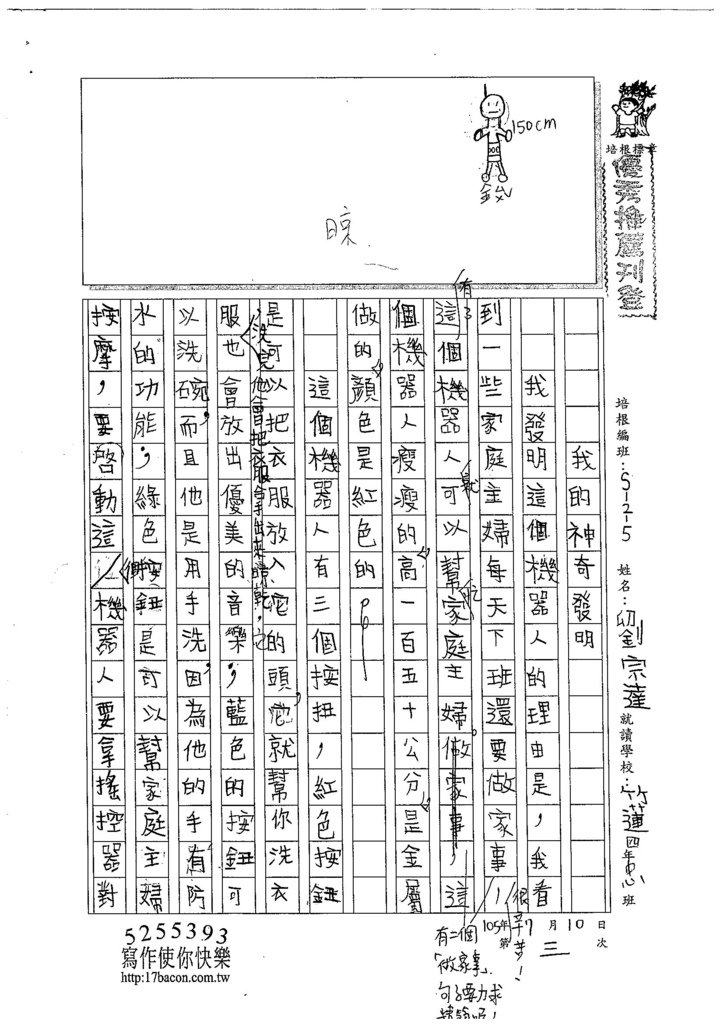 150cm
晾
培根標章
優秀推薦刊登
培根編班：S-2-5 姓名：劉宗達 就讀學校：竹蓮四年忠班
105年7月10日
第三次
我的神奇發明
我發明這個機器人的理由是，我看
到一些家庭主婦每天下班還要做家事，
很辛苦！
有了
這個機器人可以幫家庭主婦做家事，這
個機器人瘦瘦的高一百五十公分是金屬
做的顏色是紅色的。
這個機器人有三個按扭，紅色按鈕
是可以把衣服放入它的頭，它就幫你洗衣
服也會放出優美的音樂，藍色的按鈕可
以洗碗，而且他是用手洗，因為他的手有防
水的功能，綠色按鈕是可以幫家庭主婦
按摩，要啓動這機器人要拿搖控器對
，洗完他會把衣服拿出來晾乾，之
有二個
「做家事」
句子要力求
5255393
寫作使你快樂
http:17bacon.com.tw